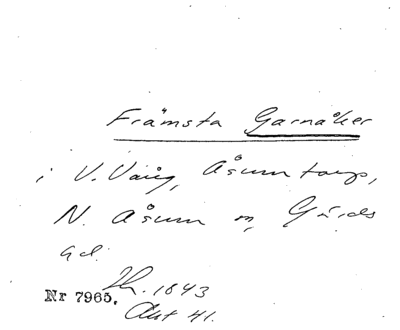 Främsta Garnåker
i V. Vång, Åsumtorp,
N. Åsum sn, Gärds
hd.
Nr 7965. Lh. 1843
Akt 41.